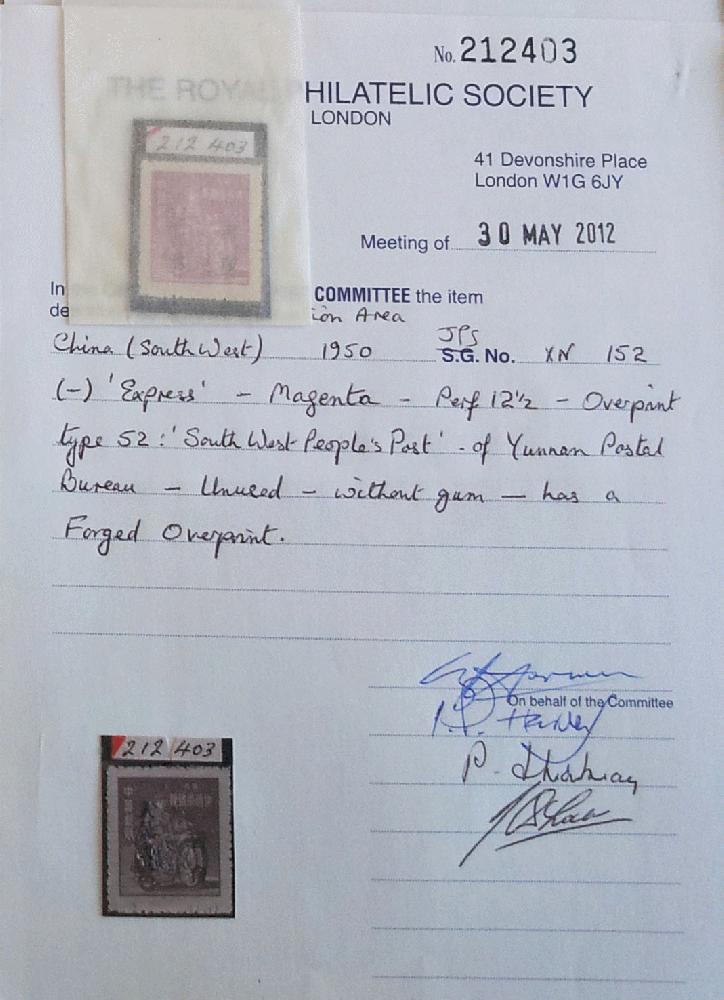 No. 212403
THE ROYAL PHILATELIC SOCIETY
LONDON
212 403
41 Devonshire Place
London W1G 6JY
Meeting of 30 MAY 2012
In COMMITTEE the item
de ion Area
China (South West) 1950 JPS S.G. No. XN 152
(-) 'Express' - Magenta - Perf 12½ - Overprint
type 52: 'South West People's Post' - of Yunnan Postal
Bureau - Unused - without gum - has a
Forged Overprint.
On behalf of the Committee
212 403